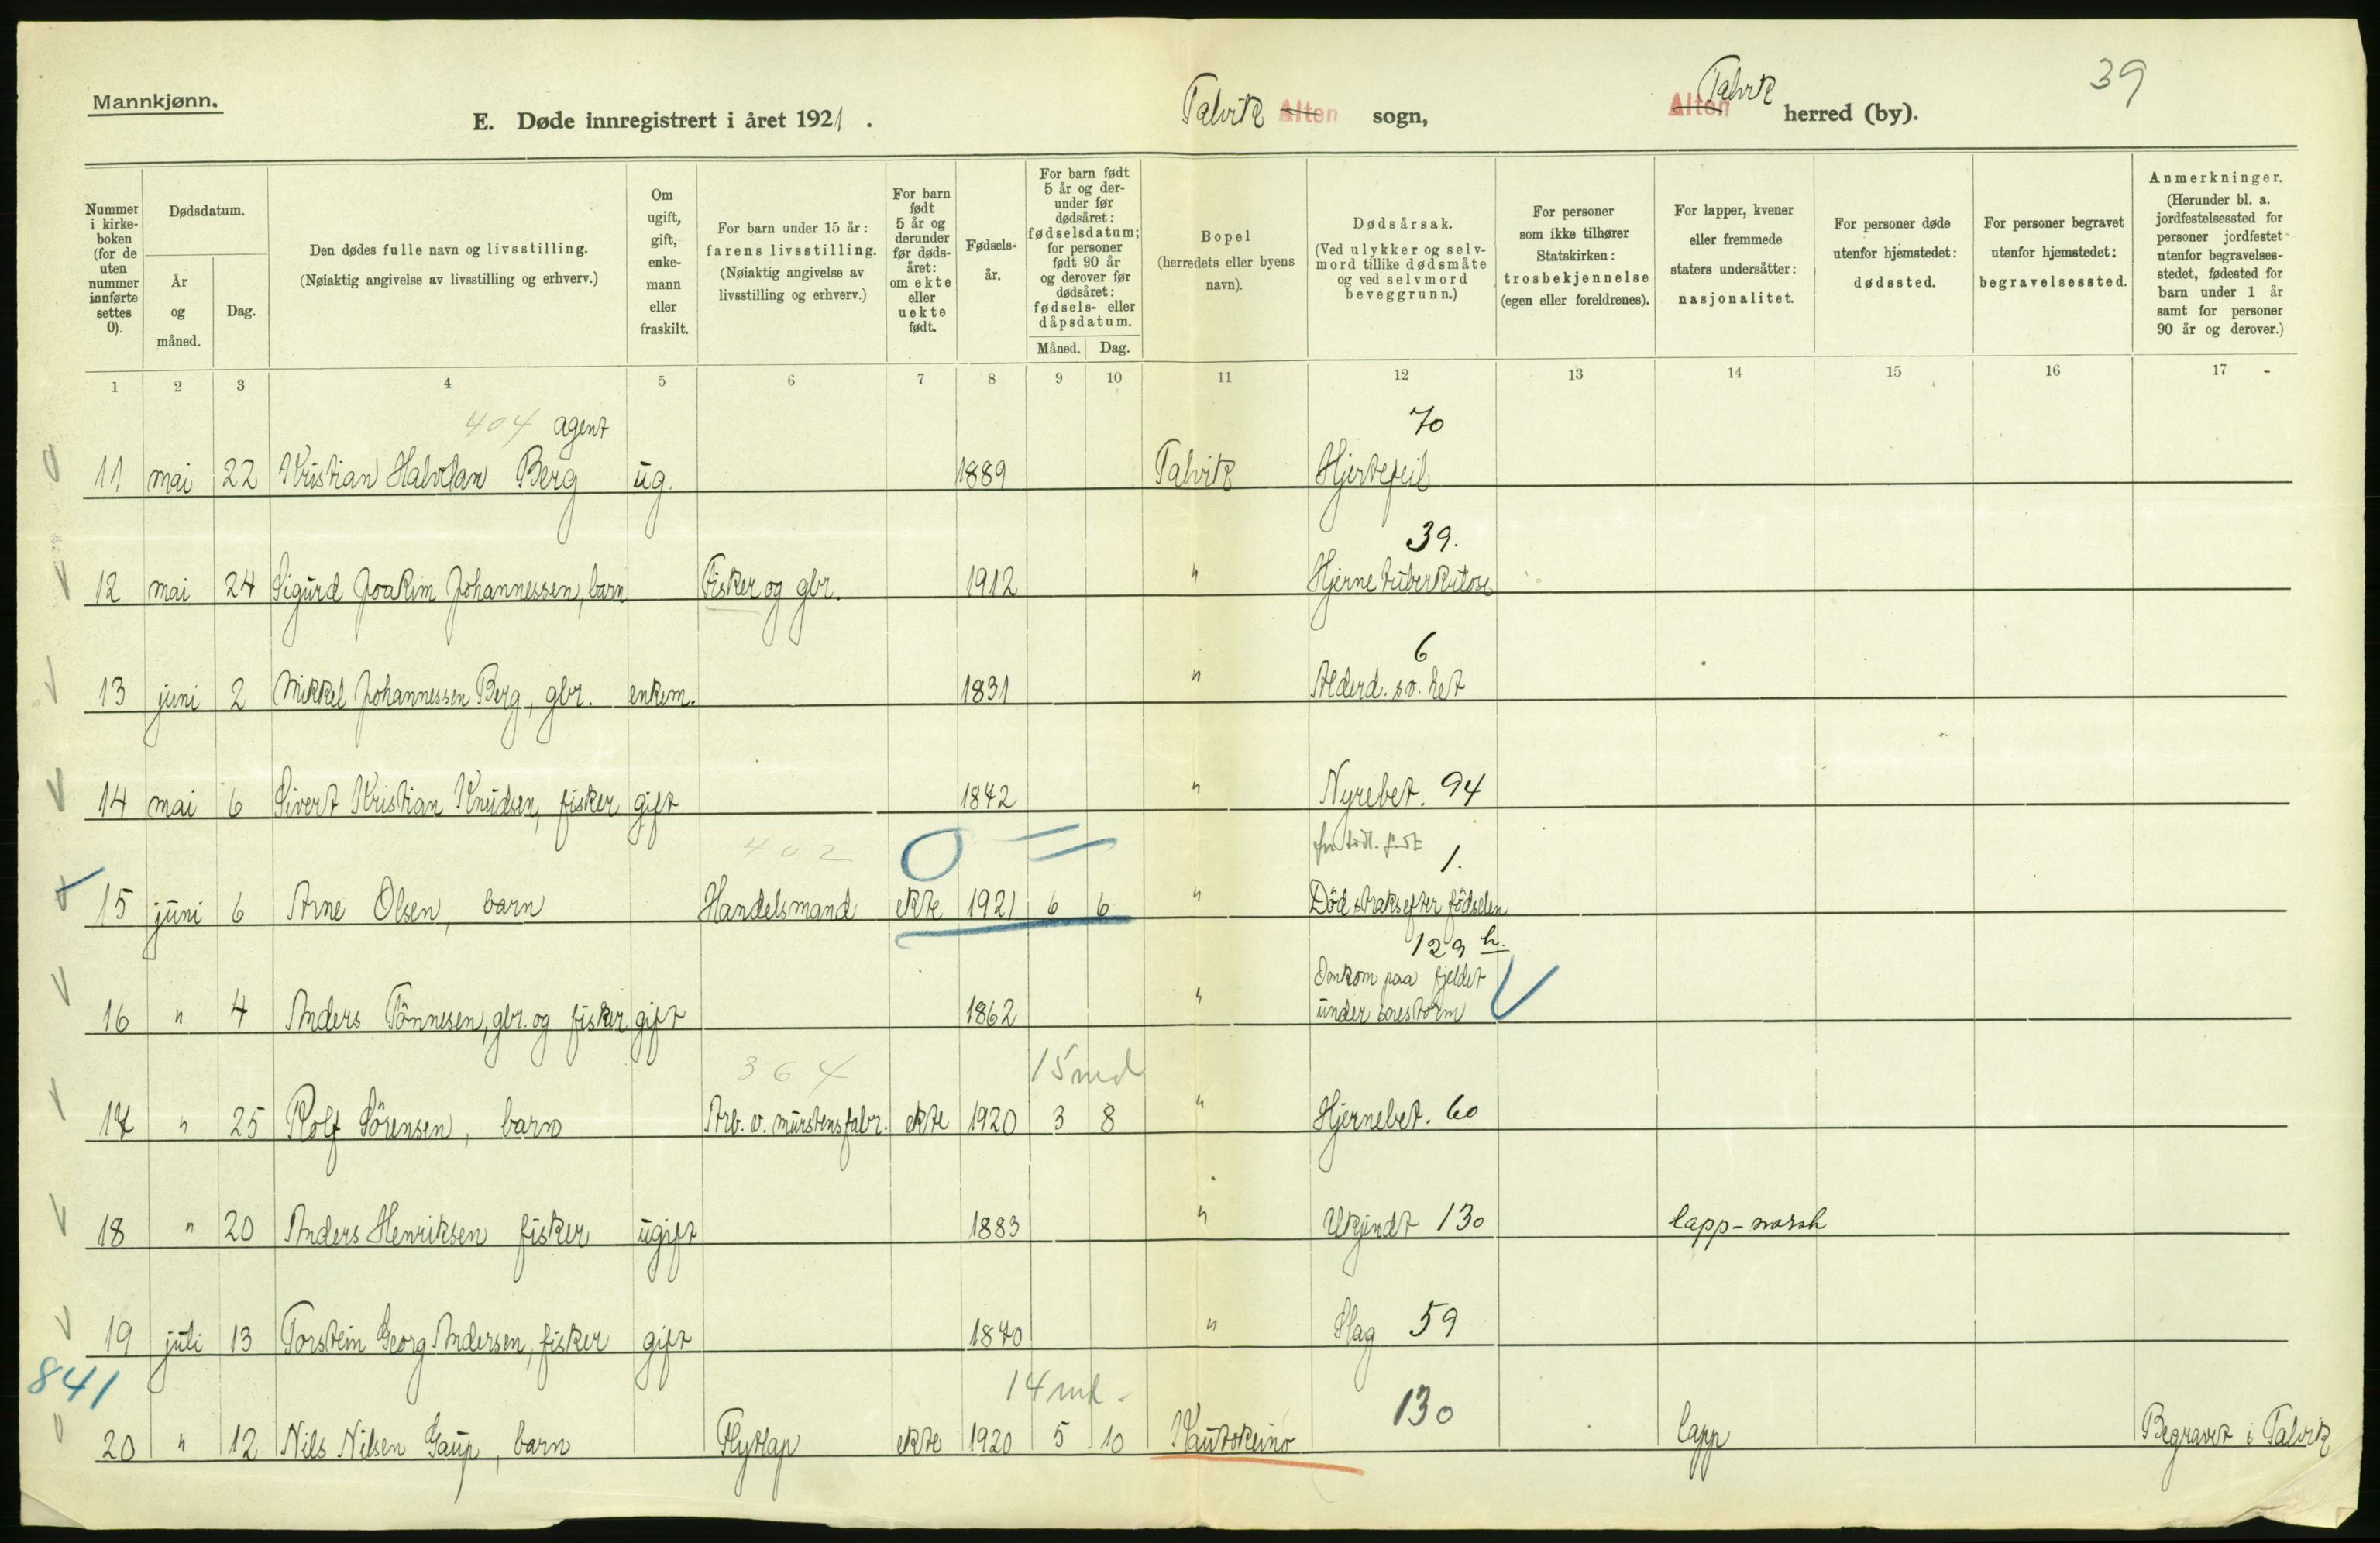 Mannkjønn.
E. Døde innregistrert i året 1921.
Talvik Alten sogn,
Alten Talvik herred (by).
39
Nummer i kirkeboken (for de uten nummer innførte settes 0).
Dødsdatum.
År og måned.
Dag.
Den dødes fulle navn og livsstilling.
(Nøiaktig angivelse av livsstilling og erhverv.)
Om ugift, gift, enkemann eller fraskilt.
For barn under 15 år: farens livsstilling.
(Nøiaktig angivelse av livsstilling og erhverv.)
For barn født 5 år og derunder før dødsåret: om ekte eller uekte født.
Fødselsår.
For barn født 5 år og derunder før dødsåret: fødselsdatum; for personer født 90 år og derover før dødsåret: fødsels- eller dåpsdatum.
Måned. Dag.
Bopel
(herredets eller byens navn).
Dødsårsak.
(Ved ulykker og selvmord tillike dødsmåte og ved selvmord beveggrunn.)
For personer som ikke tilhører Statskirken: trosbekjennelse (egen eller foreldrenes).
For lapper, kvener eller fremmede staters undersåtter: nasjonalitet.
For personer døde utenfor hjemstedet: dødssted.
For personer begravet utenfor hjemstedet: begravelsessted.
Anmerkninger.
(Herunder bl. a. jordfestelsessted for personer jordfestet utenfor begravelsesstedet, fødested for barn under 1 år samt for personer 90 år og derover.)
1 2 3 4 5 6 7 8 9 10 11 12 13 14 15 16 17
404 agent 70
11 mai 22 Kristian Halvdan Berg ug. 1889 Talvik Hjertefeil
39.
12 mai 24 Sigurd Joakim Johannessen, barn Fisker og gbr. 1912 " Hjerne tuberkulose
6
13 juni 2 Mikkel Johannessen Berg, gbr. enkem. 1831 " Alderd. sv. het
14 mai 6 Sivert Kristian Knudsen, fisker gift 1842 " Nyrebet. 94
402 0 1.
15 juni 6 Arne Olsen, barn Handelsmand ekte 1921 6 6 " Död straks efter födselen
129 h.
Omkom paa fjeldet
16 " 4 Anders Tönnesen, gbr. og fisker gift 1862 " under snestorm
364 15 md
17 " 25 Rolf Sörensen, barn Arb. v. murstensfabr. ekte 1920 3 8 " Hjernebet. 60
18 " 20 Anders Henriksen fisker ugift 1883 " Ukjendt 130 lapp-norsk
19 juli 13 Torstein Georg Andersen, fisker gift 1870 " Slag 59
841 14 md. 130
20 " 12 Nils Nilsen Gaup, barn Flytlap ekte 1920 5 10 Kautokeino lapp Begravet i Talvik